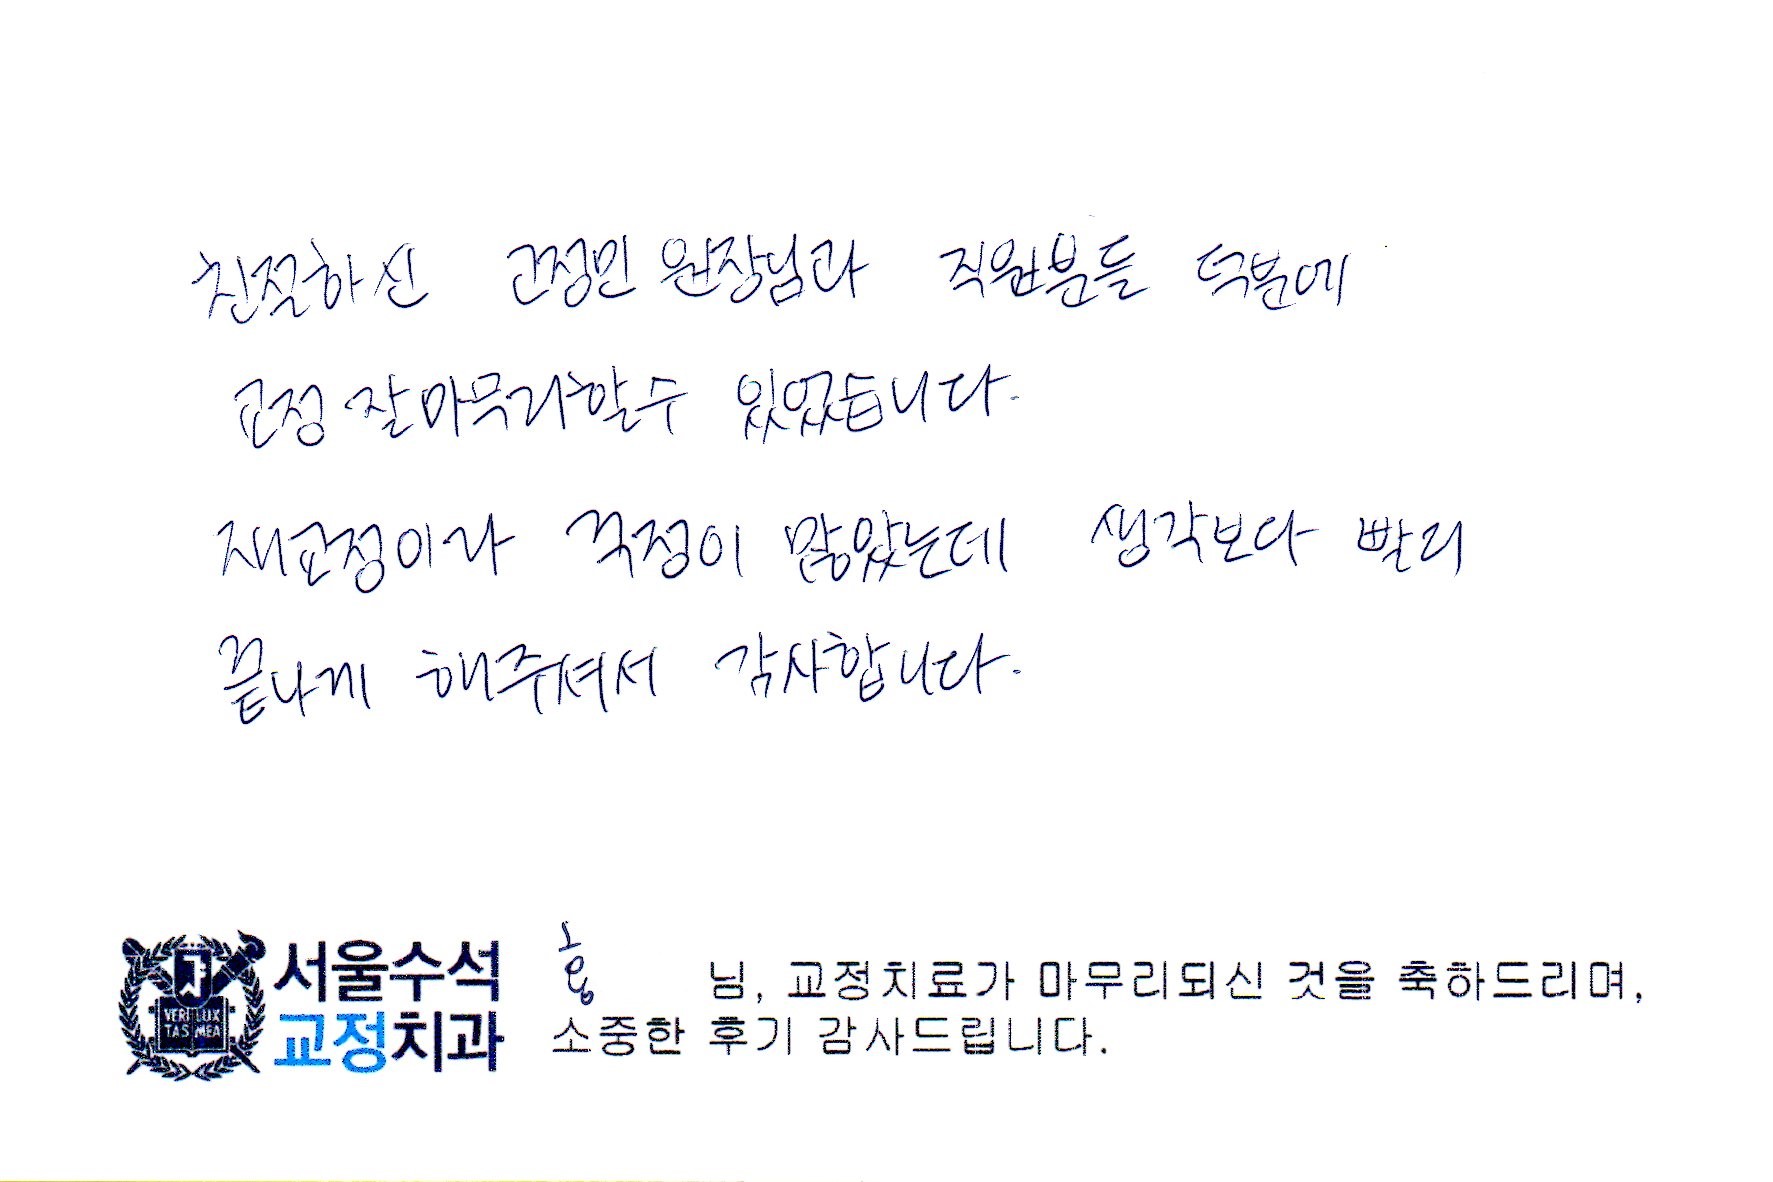 친절하신 고정민 원장님과 직원분들 덕분에
교정 잘마무리할수 있었습니다.
재교정이라 걱정이 많았는데 생각보다 빨리
끝나게 해주셔서 감사합니다.
서울수석
교정치과
VERI LUX
TAS MEA
홍 님, 교정치료가 마무리되신 것을 축하드리며,
소중한 후기 감사드립니다.